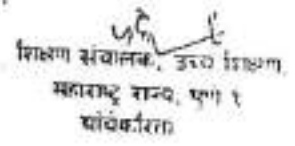 शिक्षण संचालक, उच्च शिक्षण
महाराष्ट्र राज्य, पुणे १
यांचेकरिता